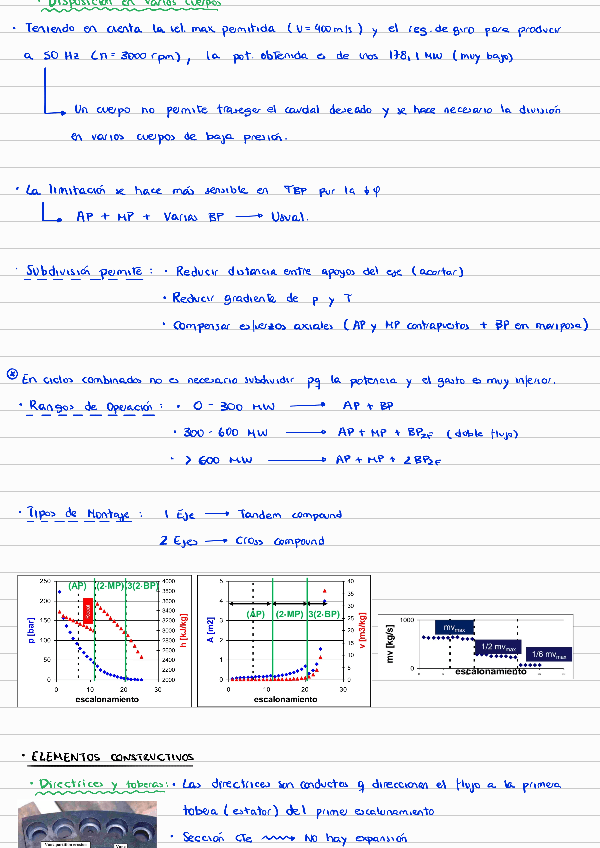 • Disposición en varios cuerpos
• Teniendo en cuenta la vel. max permitida (U = 400 m/s) y el reg. de giro para producir
a 50 Hz (n = 3000 rpm), la pot. obtenida es de unos 178,1 MW (muy bajo)
Un cuerpo no permite trasegar el caudal deseado y se hace necesario la división
en varios cuerpos de baja presión.
• La limitación se hace más sensible en TBP por la ↓φ
AP + MP + Varias BP → Usual.
• Subdivisión permite : • Reducir distancia entre apoyos del eje (acortar)
• Reducir gradiente de p y T
• Compensar esfuerzos axiales (AP y MP contrapuestos + BP en mariposa)
⊛ En ciclos combinados no es necesario subdividir pq la potencia y el gasto es muy inferior.
• Rangos de Operación : • 0 - 300 MW → AP + BP
• 300 - 600 MW → AP + MP + BP2F (doble flujo)
• > 600 MW → AP + MP + 2BP2F
• Tipos de Montaje : 1 Eje → Tandem compound
2 Ejes → Cross compound
250 200 150 100 50 0
p [bar]
(AP) (2-MP) 3(2-BP)
4000 3800 3600 3400 3200 3000 2800 2600 2400 2200 2000
h [kJ/kg]
0 10 20 30
escalonamiento
5 4 3 2 1 0
A [m2]
(AP) (2-MP) 3(2-BP)
40 35 30 25 20 15 10 5 0
v [m3/kg]
0 10 20 30
escalonamiento
1000
0
mv [kg/s]
mvmax
1/2 mvmax
1/6 mvmax
escalonamiento
• ELEMENTOS CONSTRUCTIVOS
• Directrices y toberas : • Las directrices son conductos q direccionen el flujo a la primera
tobera (estator) del primer escalonamiento
• Sección cte ⟿ No hay expansión